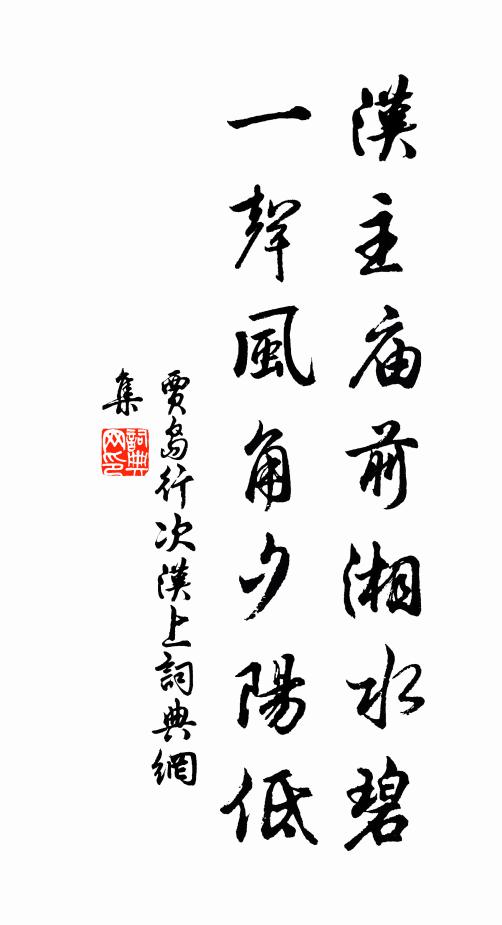 漢主庙前湘水碧
一聲風角夕陽低
賈島行次漢上詞典網
集
詞典
网印